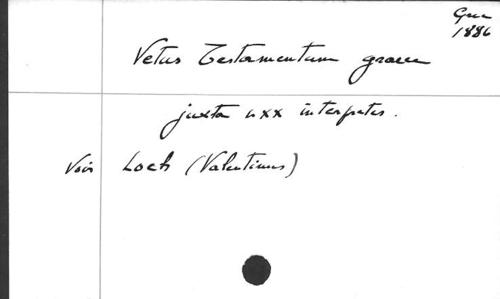 Gr
1886
Vetus Testamentum graece
juxta LXX interpretes.
Voir Loch (Valentinus)